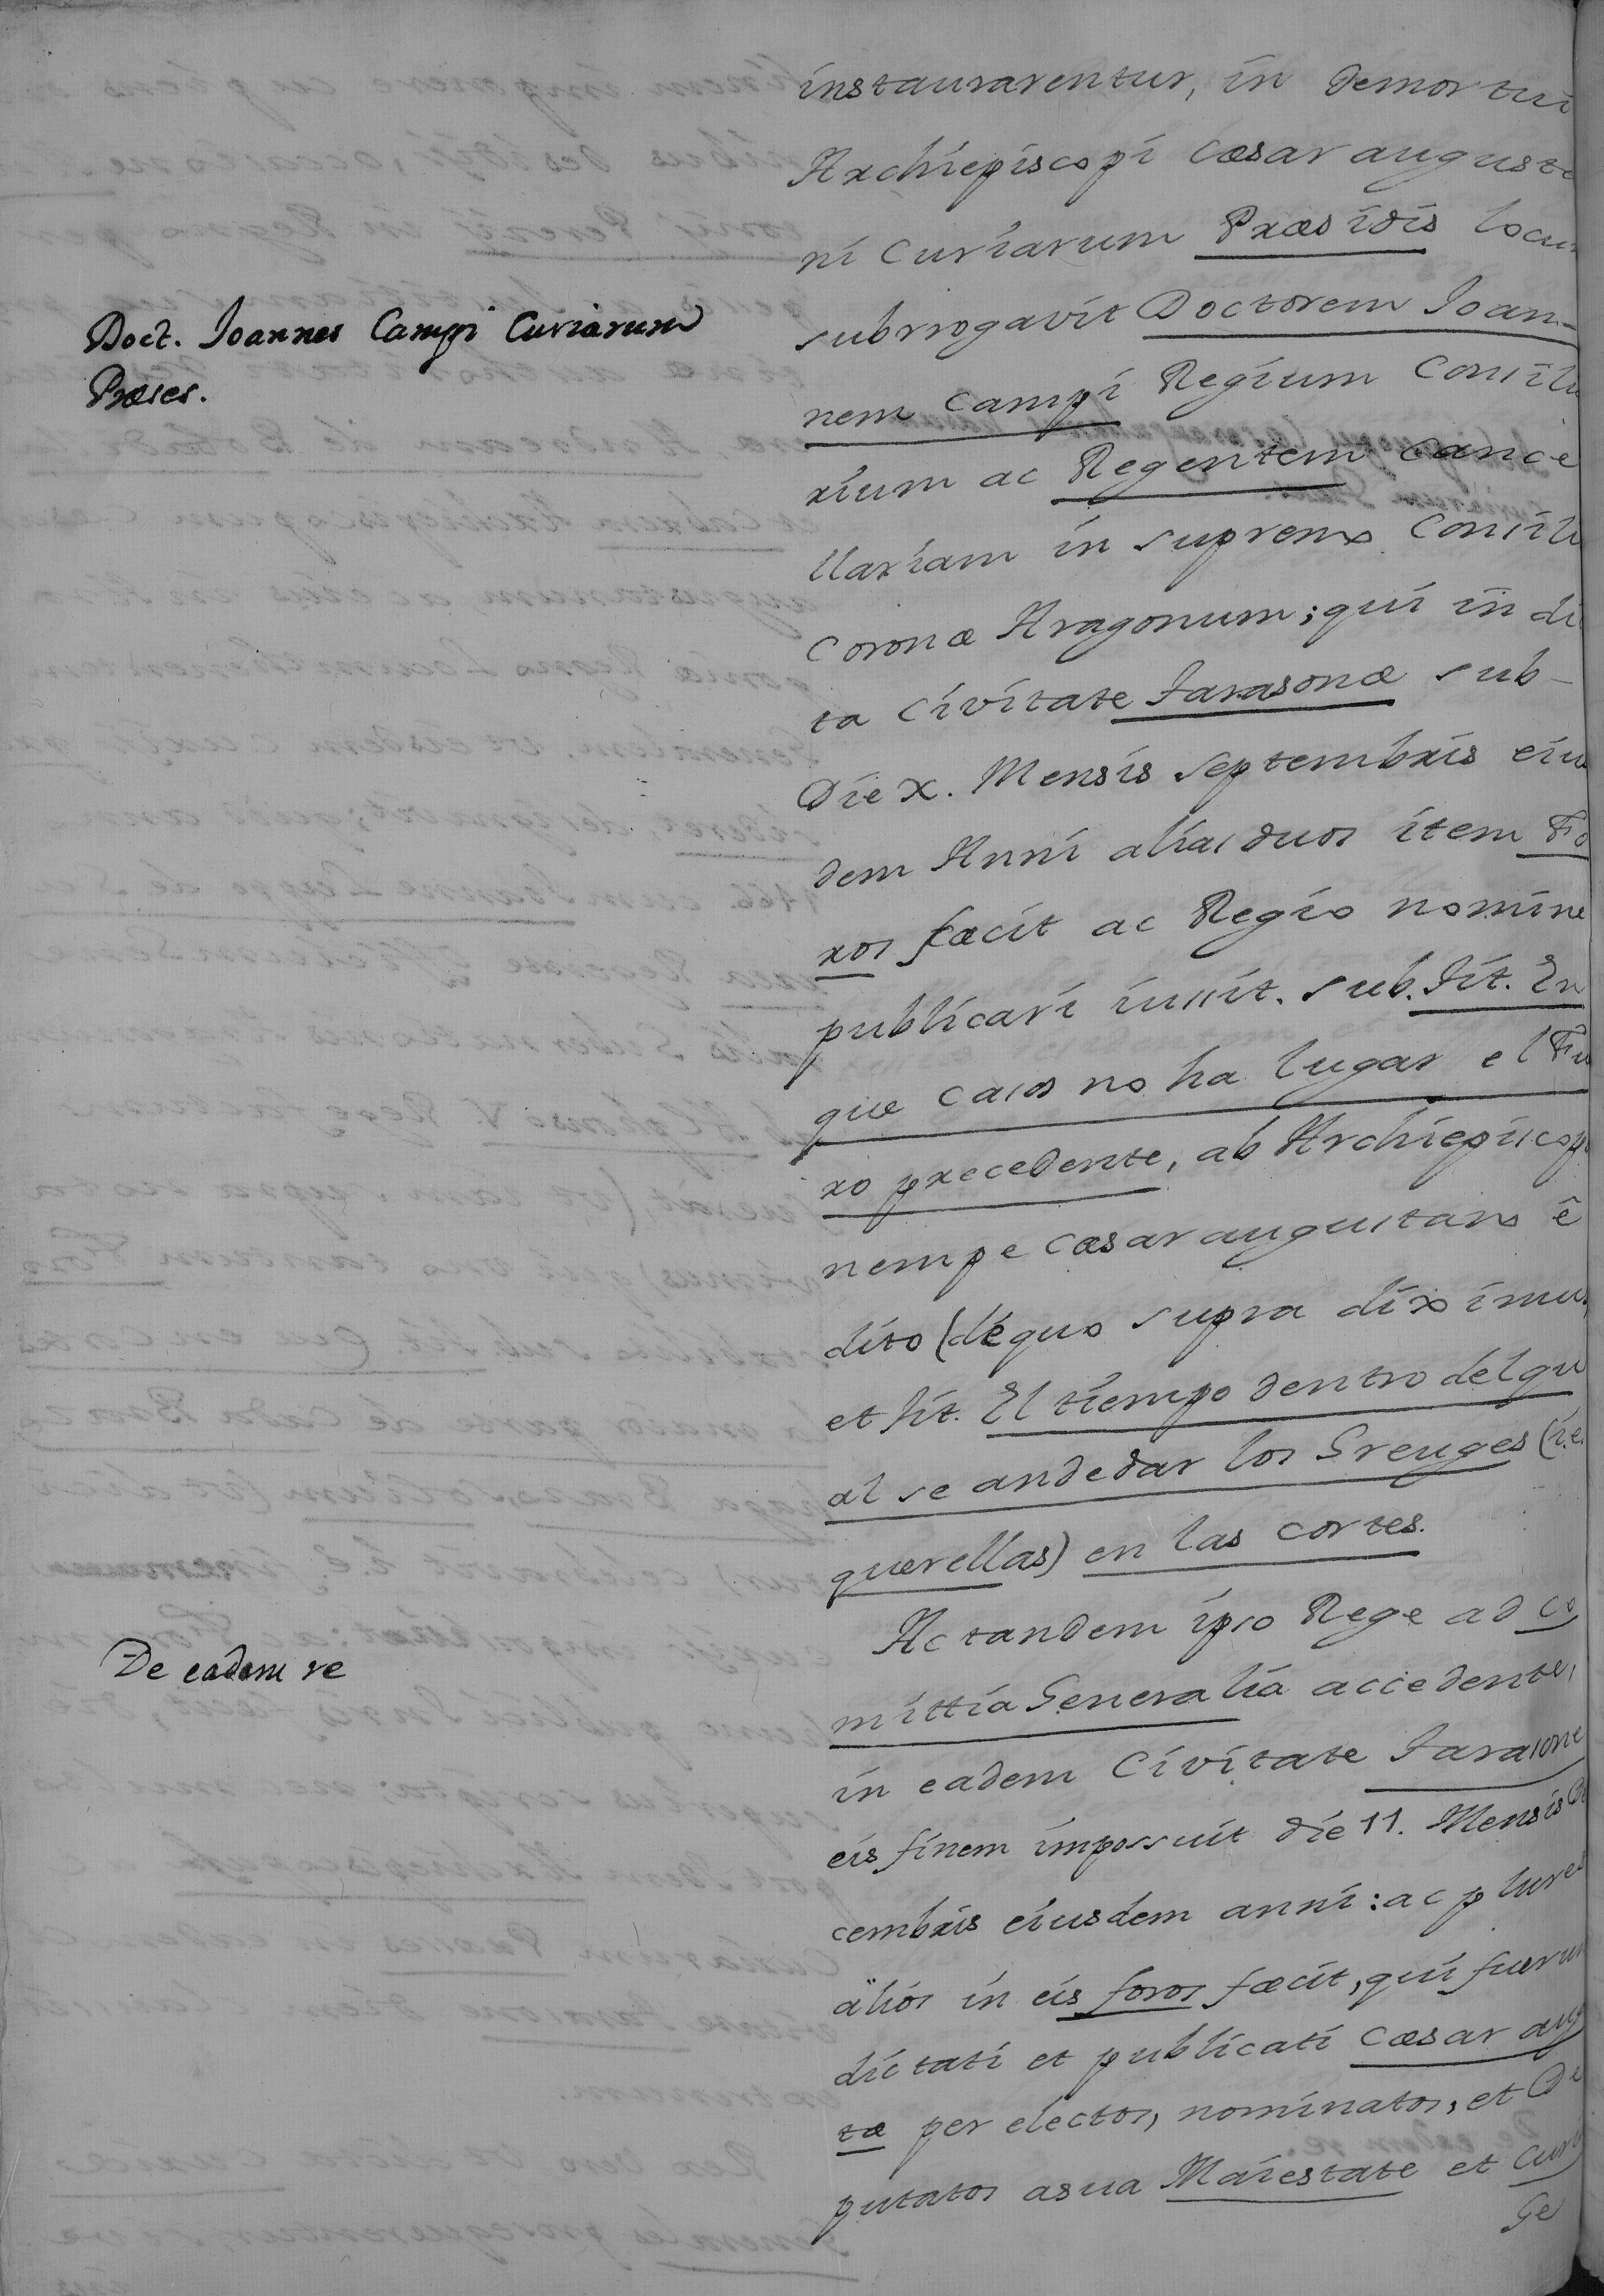 instaurarentur, in demortui
Archiepiscopi Cæsaraugusta
ni Curiarum Præsidis locu
Doct. Joannes Campi Curiarum
Præses.
subrrogavit Doctorem Joan-
nem Campi Regium Consilia
rium ac Regentem Cance
llariam in supremo Consili
Coronæ Aragonum; qui in di
ta Civitate Tarasonæ sub-
Die X. Mensis Septembris eius
dem Anni alias duos item Fo
ros fæcit ac Regio nomine
publicari iussit. sub. Tit. En
que casos no ha lugar el Fu
ro precedente, ab Archiepiscop
nempe Cæsaraugustano ê
dito (de quo supra diximus
et tit. El tiempo dentro del qu
al se an de dar los Greuges (i.e.
querellas) en las Cortes.
De eadem re
Ac tandem ipso Rege ad Co
mittia Generalia accedente,
in eadem Civitate Tarasone
eis finem impossuit die 11. Mensis De
cembris eiusdem anni: ac plures
älios in eis foros fæcit, qui fuerun
dictati et publicati Cæsaraug
tæ per electos, nominatos, et De
putatos a sua Maiestate et Curi
Ge